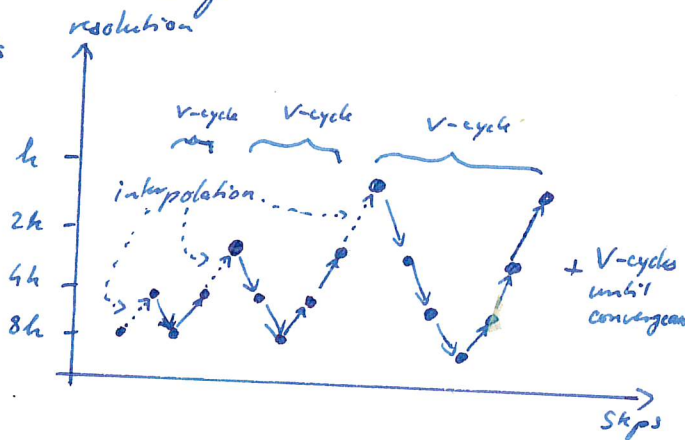 resolution
s
V-cycle
V-cycle
V-cycle
h
interpolation
2h
4h
+ V-cycles
until
8h
convergen
Steps